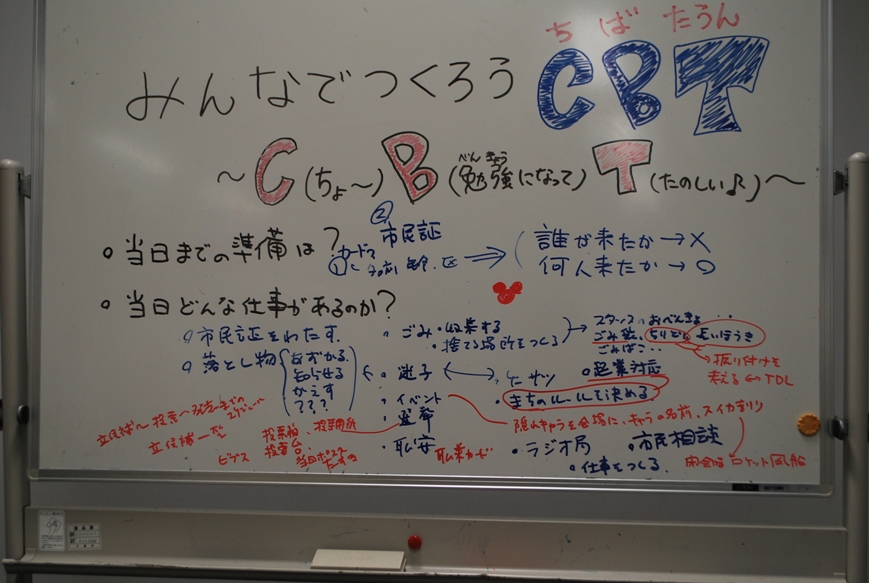 ちばたうん
みんなでつくろう CBT
～C(ちょ～)B(勉強になって)T(たのしい♪)～
べんきょう
②
市民証
○当日までの準備は?
①カードに
誰が来たか→×
何人来たか→○
○当日どんな仕事があるのか?
○市民証をわたす。
○落とし物
あずかる。
知らせる
かえす
???
・ごみ・収集する
・捨てる場所をつくる
ごみ袋、ちりとり、長いほうき
ごみばこ・・
振り付けを
考える⇐TDL
・迷子
・起業対応
・まちのルールを決める
・イベント
・選挙
隠れキャラを会場に、キャラの名前、スイカ
・職安
職業カード
・ラジオ局
・市民相談
・仕事をつくる。
立候補～投票～発表までの
立候補
投票箱、投票用紙
投票台、
閉会はロケット風船